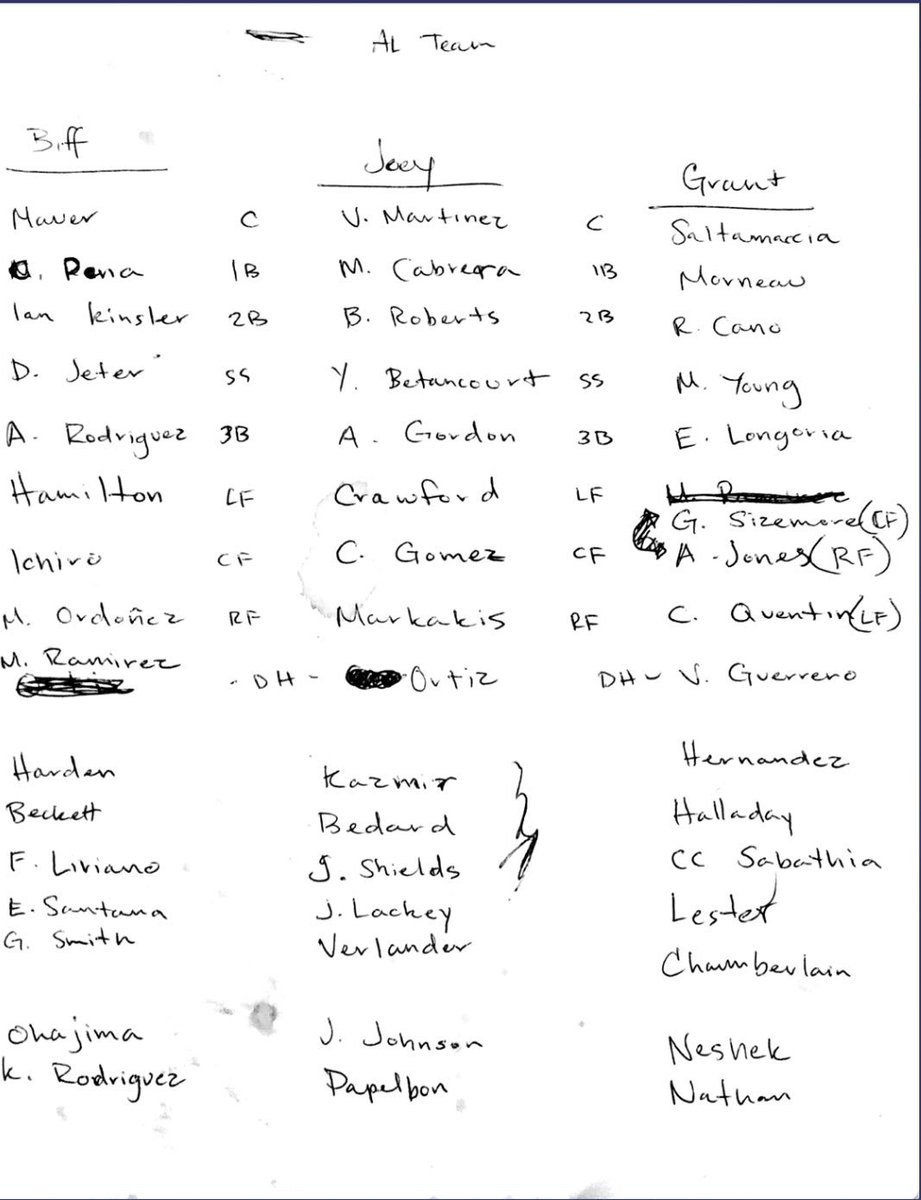 AL Team
Biff Joey Grant
Mauer C V. Martinez C Saltamaccia
C. Pena 1B M. Cabrera 1B Morneau
Ian kinsler 2B B. Roberts 2B R. Cano
D. Jeter SS Y. Betancourt SS M. Young
A. Rodriguez 3B A. Gordon 3B E. Longoria
Hamilton LF Crawford LF
G. Sizemore (CF)
Ichiro CF C. Gomez CF A. Jones (RF)
M. Ordoñez RF Markakis RF C. Quentin (LF)
M. Ramirez
- DH - Ortiz DH - V. Guerrero
Harden Kazmir Hernandez
Beckett Bedard Halladay
F. Liriano J. Shields CC Sabathia
E. Santana J. Lackey Lester
G. Smith Verlander Chamberlain
Okajima J. Johnson Neshek
K. Rodriguez Papelbon Nathan